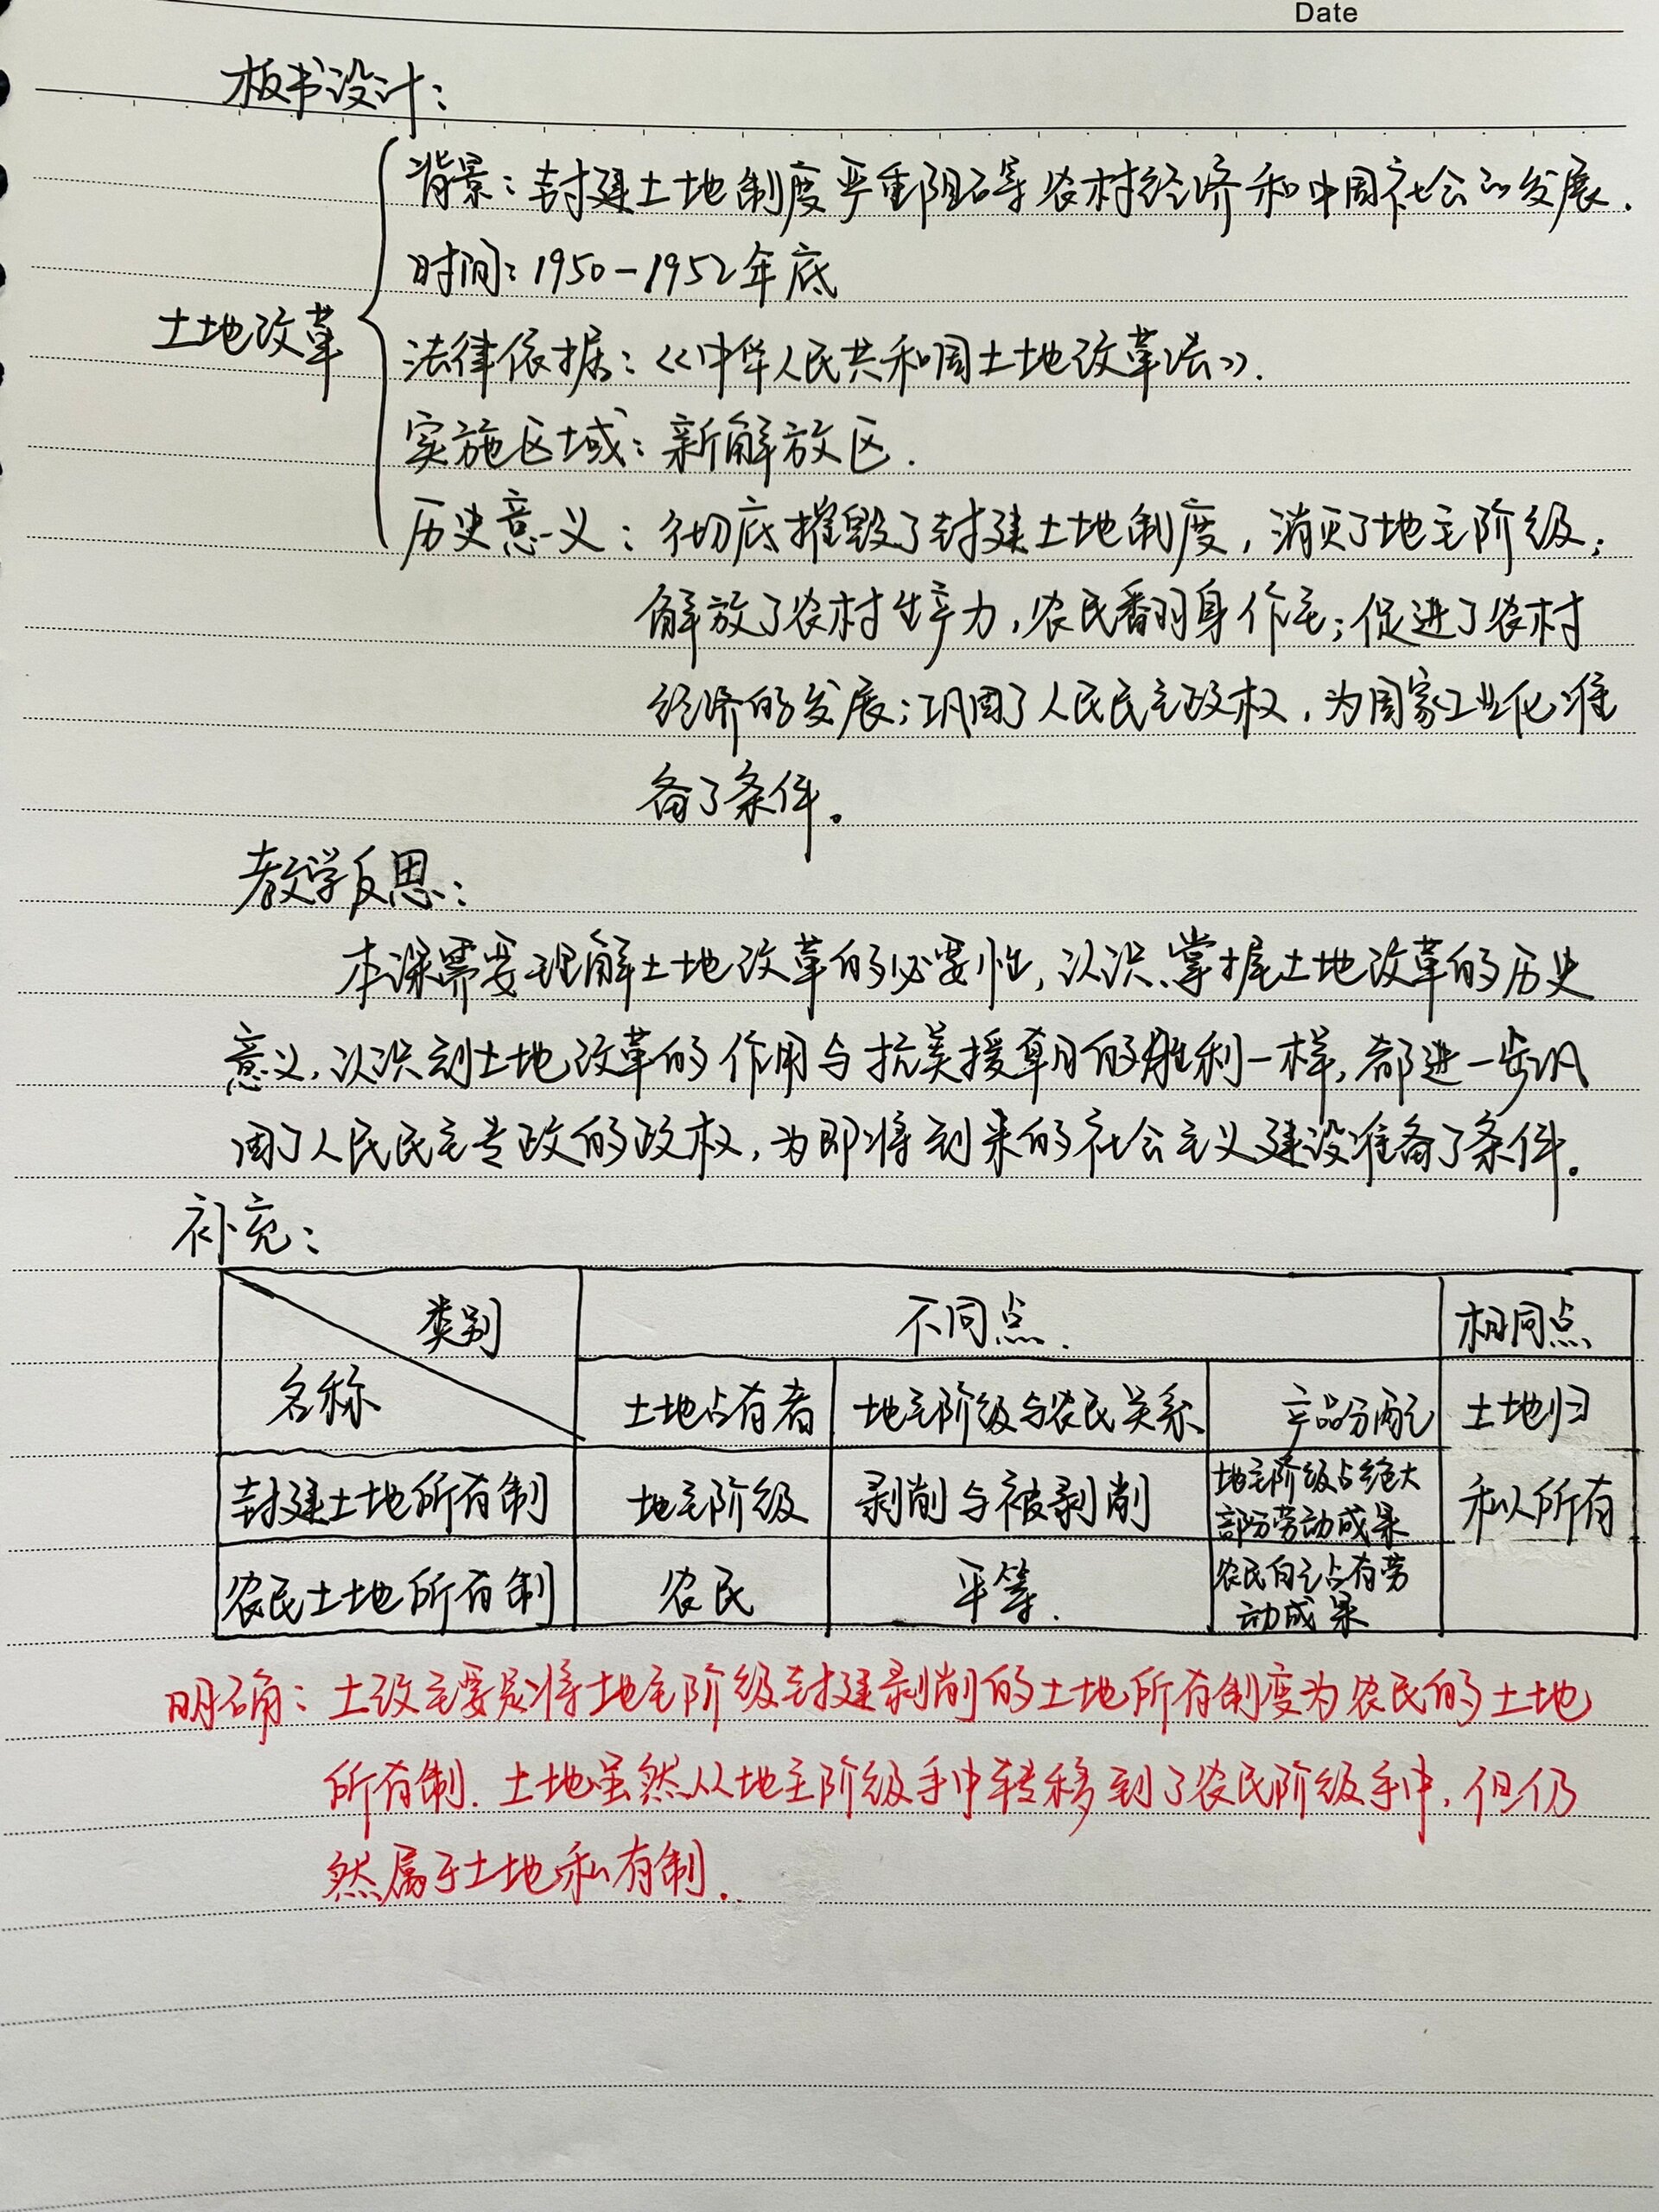 Date
板书设计:
背景:封建土地制度严重阻碍农村经济和中国社会的发展.
时间:1950-1952年底
土地改革
法律依据:《中华人民共和国土地改革法》.
实施区域:新解放区.
历史意义:彻底摧毁了封建土地制度,消灭了地主阶级;
解放了农村生产力,农民翻身作主;促进了农村
经济的发展;巩固了人民民主政权,为国家工业化准
备了条件。
教学反思:
本课需要理解土地改革的必要性,认识、掌握土地改革的历史
意义,认识到土地改革的作用与抗美援朝的胜利一样,都进一步巩
固了人民民主专政的政权,为即将到来的社会主义建设准备了条件。
补充:
类别 不同点. 相同点
名称 土地占有者 地主阶级与农民关系 产品分配 土地归
封建土地所有制 地主阶级 剥削与被剥削 地主阶级占绝大 私人所有
部分劳动成果
农民土地所有制 农民 平等. 农民自己占有劳
动成果
明确:土改主要是将地主阶级封建剥削的土地所有制变为农民的土地
所有制.土地虽然从地主阶级手中转移到了农民阶级手中,但仍
然属于土地私有制.